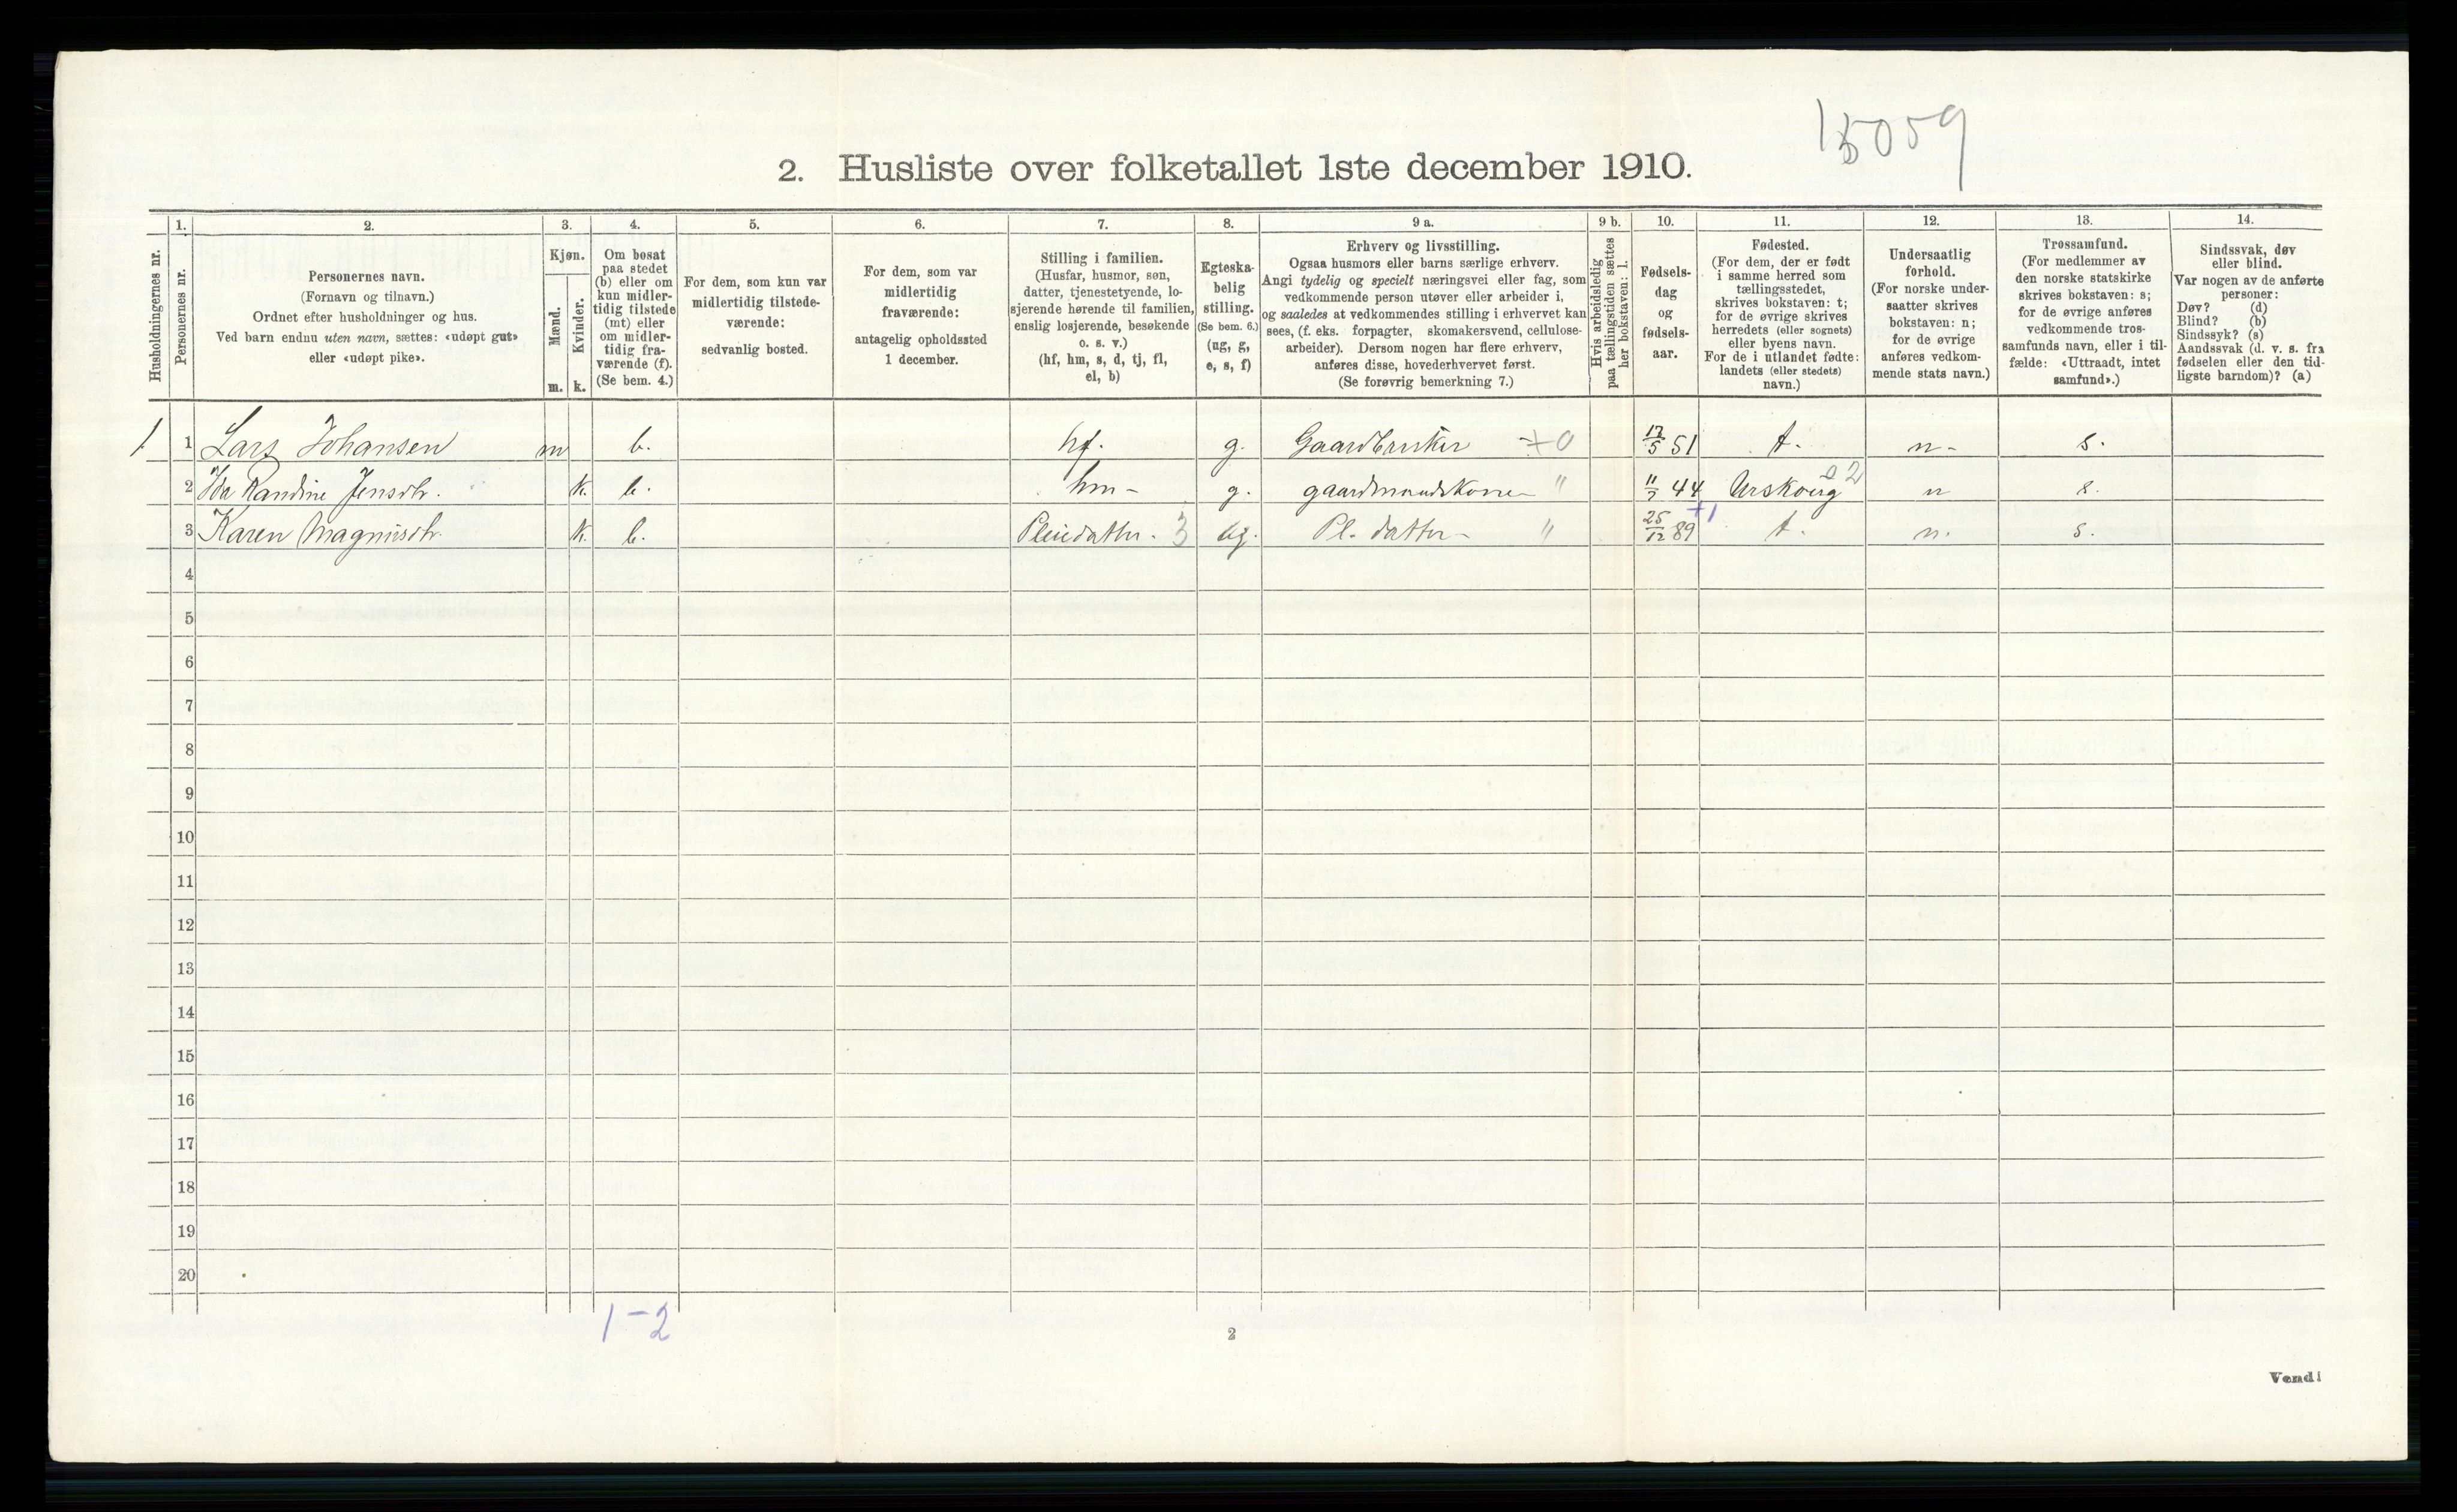 15059
2. Husliste over folketallet 1ste december 1910.
Husholdningernes nr.
1.
Personernes nr.
2.
Personernes navn.
(Fornavn og tilnavn.)
Ordnet efter husholdninger og hus.
Ved barn endnu uten navn, sættes: «udøpt gut»
eller «udøpt pike».
3.
Kjøn.
Mænd.
m.
Kvinder.
k.
4.
Om bosat
paa stedet
(b) eller om
kun midler-
tidig tilstede
(mt) eller
om midler-
tidig fra-
værende (f).
(Se bem. 4.)
5.
For dem, som kun var
midlertidig tilstede-
værende:
sedvanlig bosted.
6.
For dem, som var
midlertidig
fraværende:
antagelig opholdssted
1 december.
7.
Stilling i familien.
(Husfar, husmor, søn,
datter, tjenestetyende, lo-
sjerende hørende til familien,
enslig losjerende, besøkende
o. s. v.)
(hf, hm, s, d, tj, fl,
el, b)
8.
Egteska-
belig
stilling.
(Se bem. 6.)
(ug, g,
e, s, f)
9 a.
Erhverv og livsstilling.
Ogsaa husmors eller barns særlige erhverv.
Angi tydelig og specielt næringsvei eller fag, som
vedkommende person utøver eller arbeider i,
og saaledes at vedkommendes stilling i erhvervet kan
sees, (f. eks. forpagter, skomakersvend, cellulose-
arbeider). Dersom nogen har flere erhverv,
anføres disse, hovederhvervet først.
(Se forøvrig bemerkning 7.)
9 b.
Hvis arbeidsledig
paa tællingstiden sættes
her bokstaven: l.
10.
Fødsels-
dag
og
fødsels-
aar.
11.
Fødested.
(For dem, der er født
i samme herred som
tællingsstedet,
skrives bokstaven: t;
for de øvrige skrives
herredets (eller sognets)
eller byens navn.
For de i utlandet fødte:
landets (eller stedets)
navn.)
12.
Undersaatlig
forhold.
(For norske under-
saatter skrives
bokstaven: n;
for de øvrige
anføres vedkom-
mende stats navn.)
13.
Trossamfund.
(For medlemmer av
den norske statskirke
skrives bokstaven: s;
for de øvrige anføres
vedkommende tros-
samfunds navn, eller i til-
fælde: «Uttraadt, intet
samfund».)
14.
Sindssvak, døv
eller blind.
Var nogen av de anførte
personer:
Døv? (d)
Blind? (b)
Sindssyk? (s)
Aandssvak (d. v. s. fra
fødselen eller den tid-
ligste barndom)? (a)
1 1 Lars Johansen m b. hf. g. Gaardbruker +0 12/5 51 t. n- s.
2 Ida Randine Jensdtr. k. b. hm- g. gaardmandskone " 11/7 44 Urskoug 2 n s.
3 Karen Magnusdtr. k. b. Pleiedatter. 3 ug. Pl. datter - " 25/12 89 +1 t. n. s.
4
5
6
7
8
9
10
11
12
13
14
15
16
17
18
19
20
1-2
2
Vend!